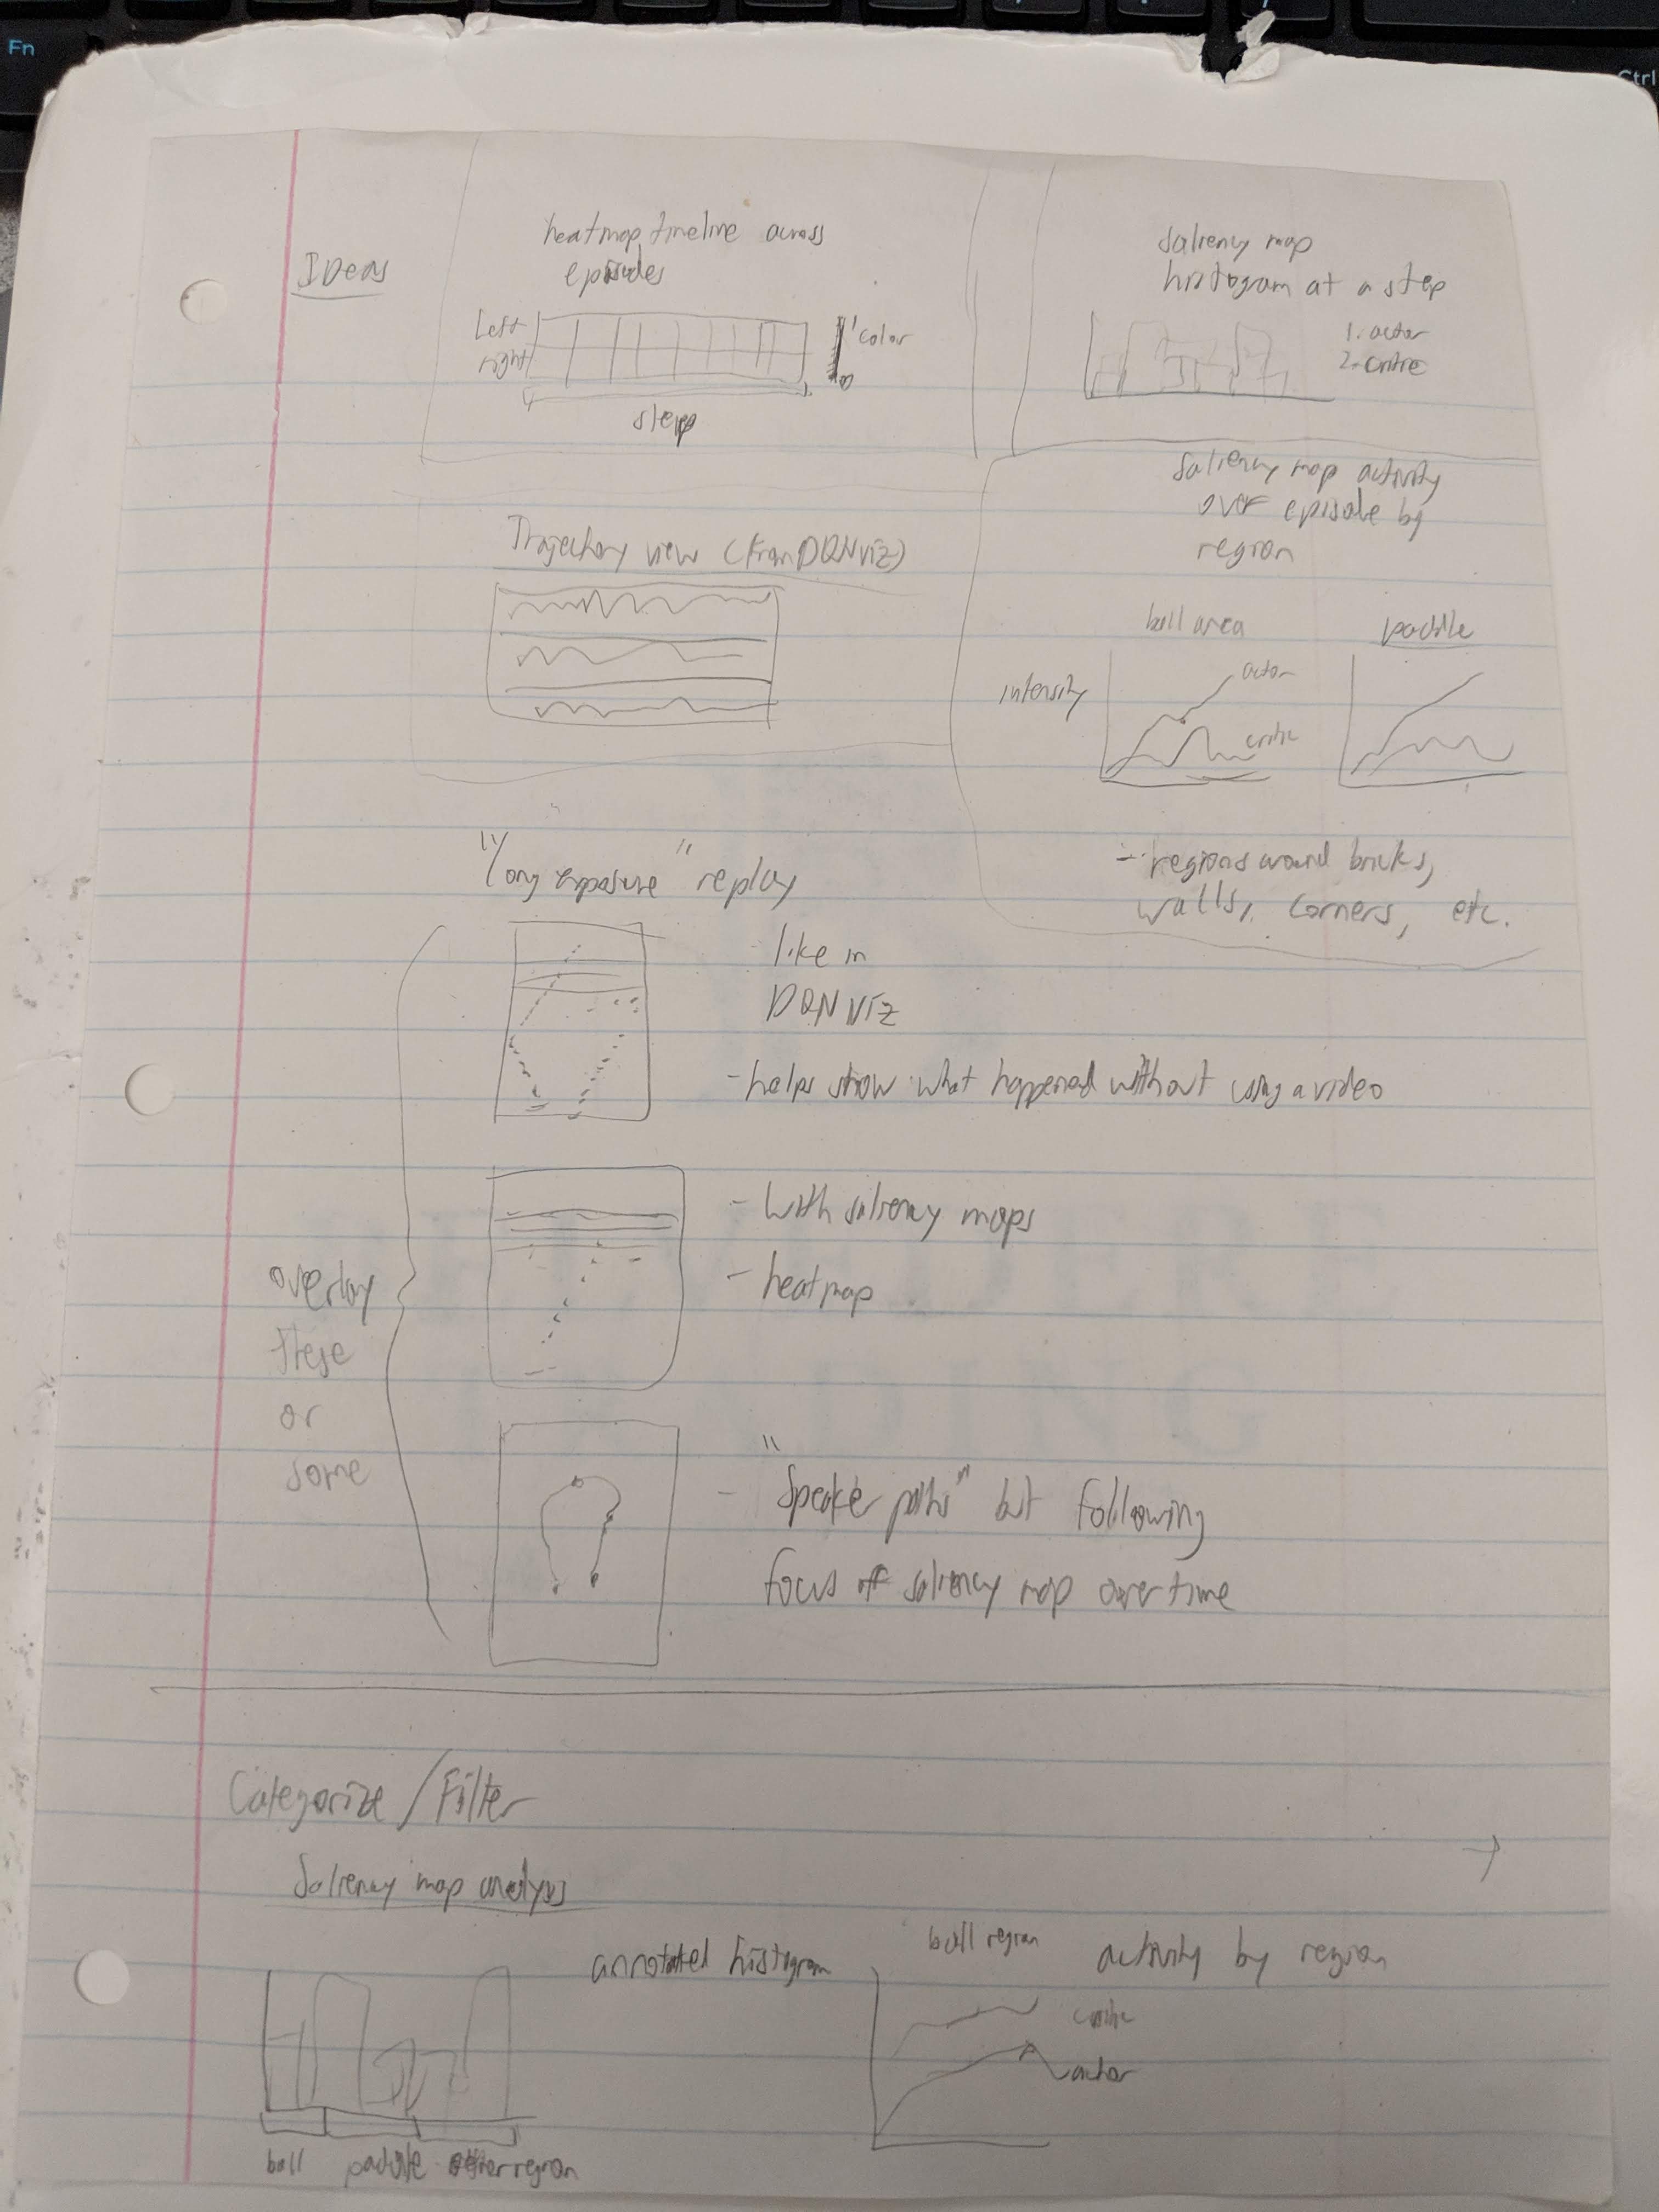 Fn
Ctrl
IDeas
heatmap timeline across
episodes
Left
right
1
color
0
step
Saliency map
histogram at a step
1. actor
2. critic
Saliency map activity
over episode by
region
ball area
paddle
intensity
actor
critic
- regions around bricks,
walls, corners, etc.
Trajectory view (from DQNViz)
"long exposure" replay
- like in
DQNViz
- helps show what happened without using a video
- with saliency maps
- heatmap
overlay
these
or
some
- "Speaker paths" but following
focus of saliency map over time
Categorize/Filter
Saliency map analysis
annotated histogram
ball
paddle
other region
ball region
activity by region
critic
actor